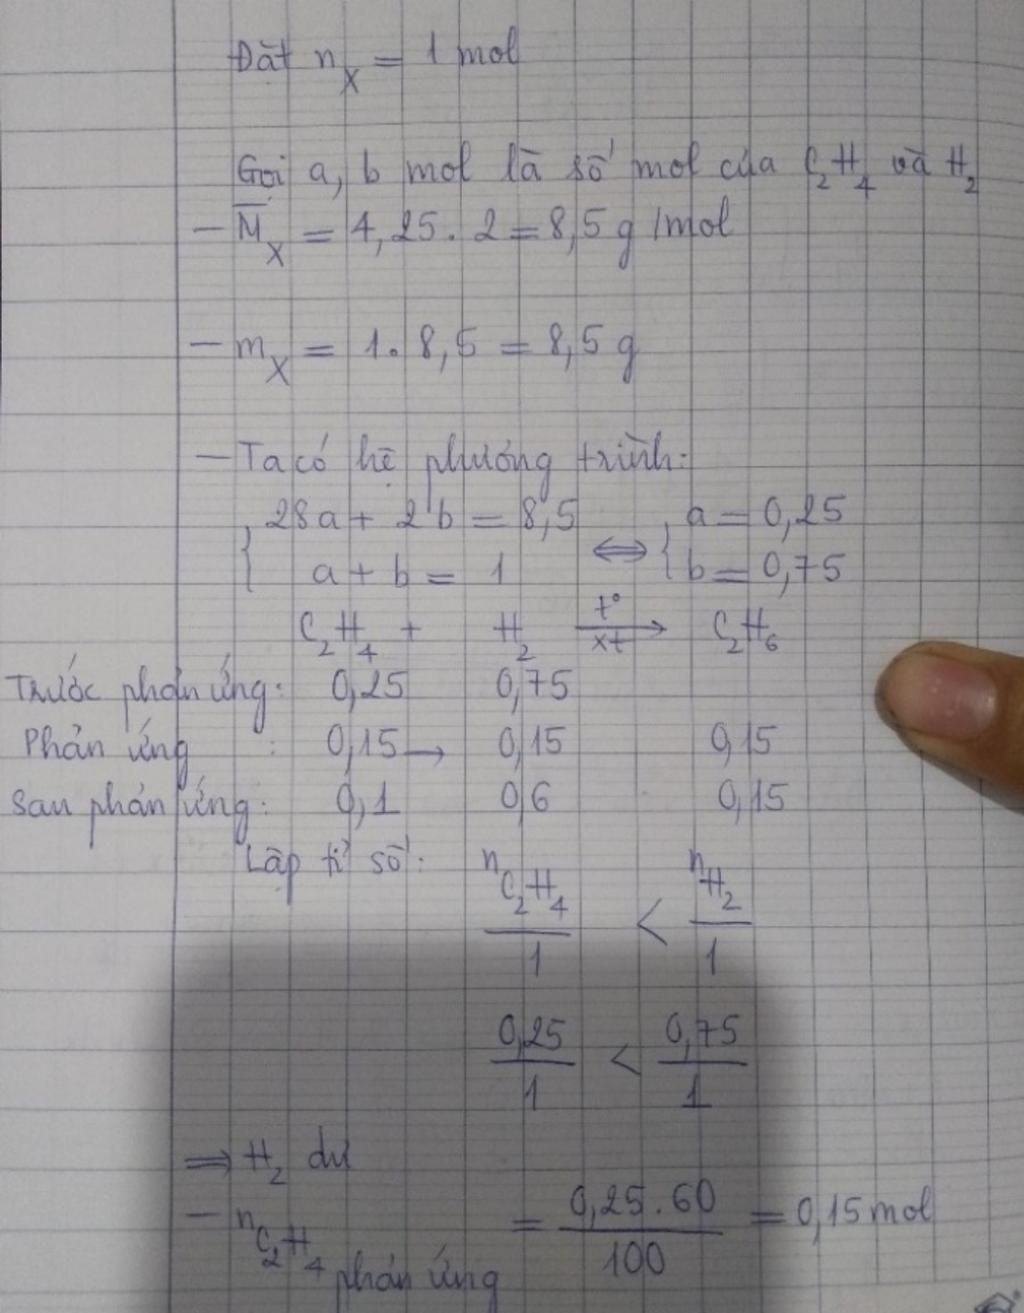 Đặt nX = 1 mol
Gọi a, b mol là số mol của C2H4 và H2
- M̅X = 4,25. 2 = 8,5 g /mol
- mX = 1. 8,5 = 8,5 g
- Ta có hệ phương trình:
{ 28a + 2b = 8,5 ⇔ { a = 0,25
a + b = 1 b = 0,75
C2H4 + H2 t°/xt → C2H6
Trước phản ứng: 0,25 0,75
Phản ứng : 0,15 → 0,15 0,15
Sau phản ứng: 0,1 0,6 0,15
Lập tỉ số: nC2H4/1 < nH2/1
0,25/1 < 0,75/1
⇒ H2 dư
- nC2H4 phản ứng = 0,25. 60/100 = 0,15 mol